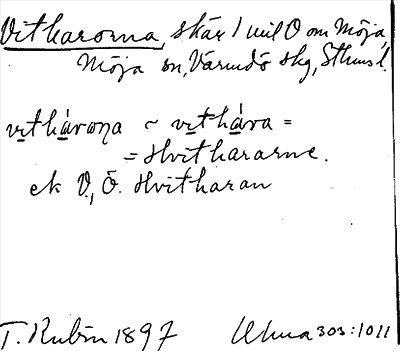 Vitharorna, skär 1 mil O om Möja,
Möja sn, Värmdö skg, Sthms l.
vithárona ~ vithára =
= Hvithararne.
ek V., Ö. Hvitharan
T. Rubin 1897 Uhua 303:1011